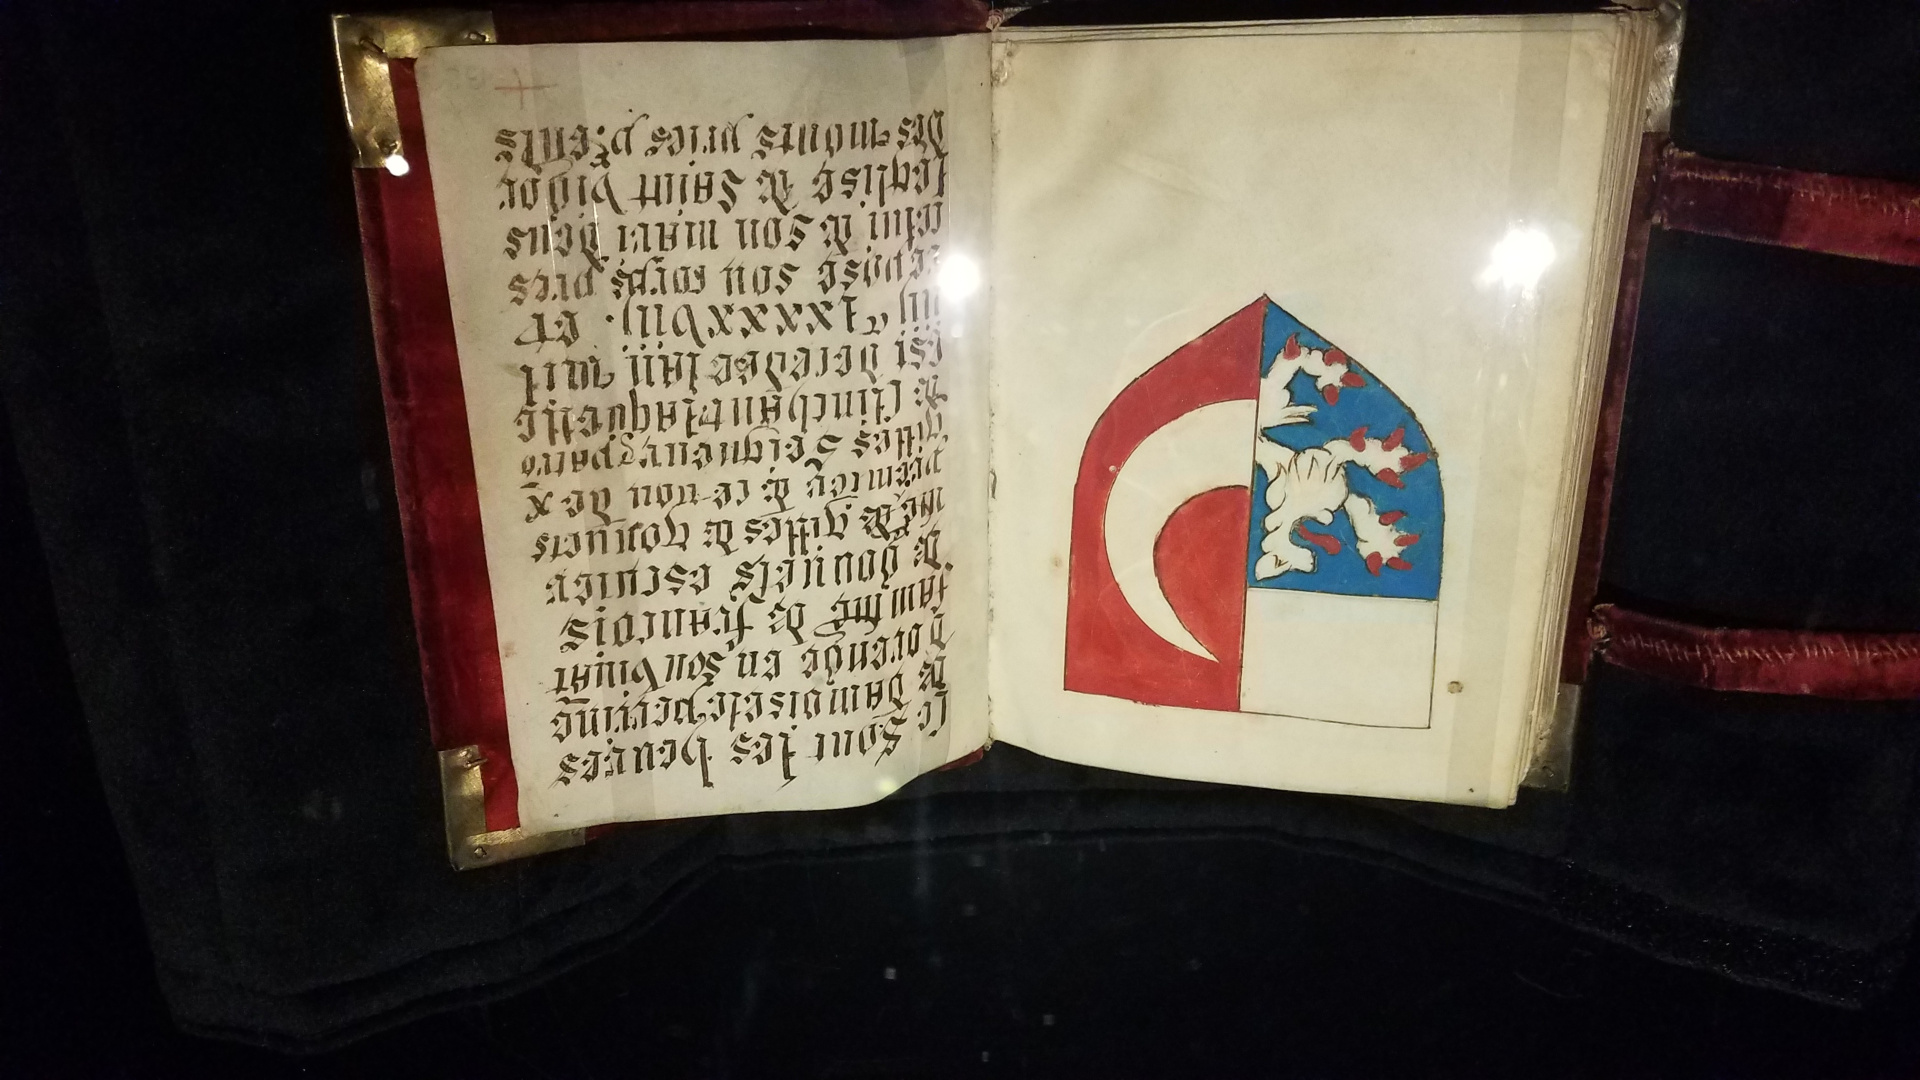 Ce Sont les heures
de damoiselle perrine
dorenge en son vivant
famme de francois
de gouuets escuier
mere de gilles de gouuets
premier de ce non
gilles Seigneur patro
de Clinchant laquelle
est decedee lan mil
iiij c lxxxxviij. et
repose son corps pres
celui de son mari dens
leglise de Saint vigor
des monts pries p. eulx